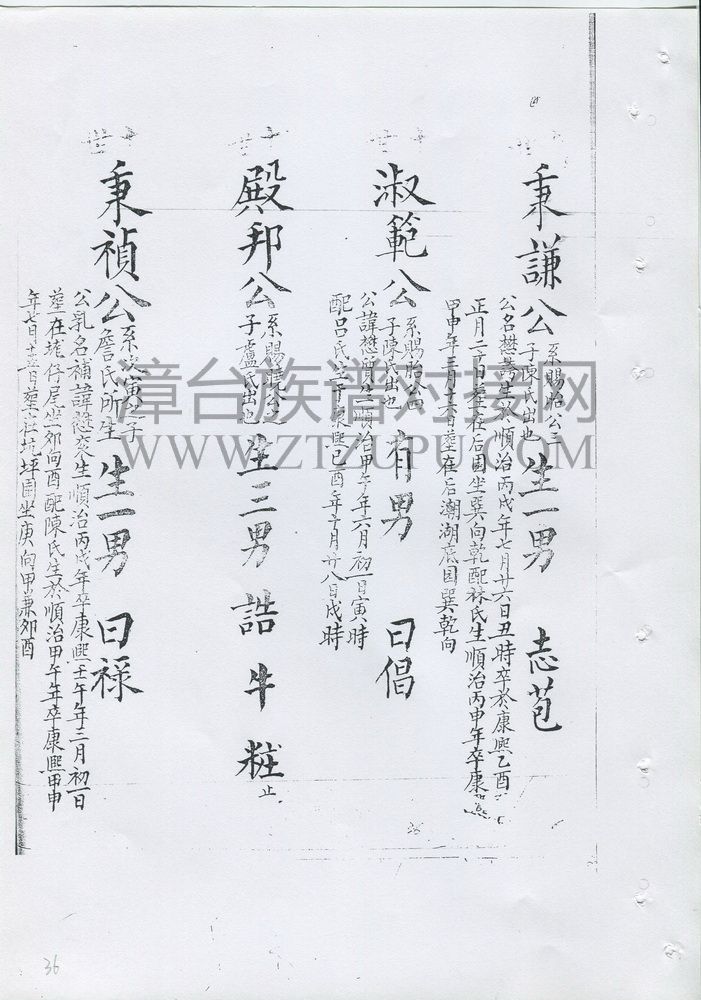 秉謙公 系賜胎公三子陳氏出也 生一男 志苞
公名懋 生於順治丙戌年七月廿六日丑時卒於康熙乙酉
正月二 日塟在后園坐巽向乾配林氏生順治丙申年卒康熙
甲申年三月十六日塟在后潮湖底園巽乾向
淑範公 系賜胎公四子陳氏出也 有男 曰倡
公諱懋 生順治甲午年六月初一日寅時
配呂氏 康熙己酉年十月廿八日戌時
殿邦公 系賜 公之子盧氏出也 生三男 誥 牛 粧 止
秉禎公 系 寅公子詹氏所生 生一男 曰禄
公乳名補諱 生順治丙戌年卒康熙壬午年三月初一日
塟在 仔尾坐卯向酉配陳氏生於順治甲午年卒康熙甲申
年七月十五日塟在坑坪園坐庚向甲兼卯酉
漳台族谱对接网
WWW.ZTZUPU.COM
36